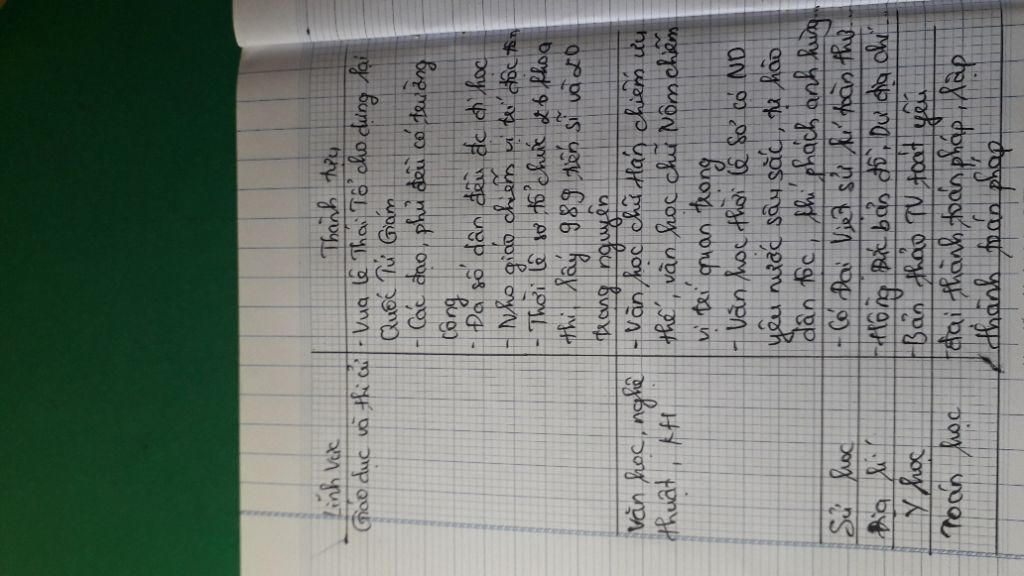 Lĩnh vực Thành tựu
Giáo dục và thi cử - Vua Lê Thái Tổ cho dựng lại
Quốc Tử Giám
- Các đạo, phủ đều có trường
công
- Đa số dân đều đc đi học
- Nho giáo chiếm vị trí độc tôn
- Thời lê sơ tổ chức 26 khoa
thi, lấy 989 tiến sĩ và 20
trạng nguyên
Văn học, nghệ - Văn học chữ Hán chiếm ưu
thuật, KH thế, văn học chữ Nôm chiếm
vị trí quan trọng
- Văn học thời lê sơ có ND
yêu nước sâu sắc, tự hào
dân tộc, khí phách anh hùng...
Sử học - Có Đại Việt sử kí toàn thư...
Địa lí - Hồng Đức bản đồ, Dư địa chí...
Y học - Bản thảo TV toát yếu
Toán học Đại thành toán pháp, lập
thành toán pháp